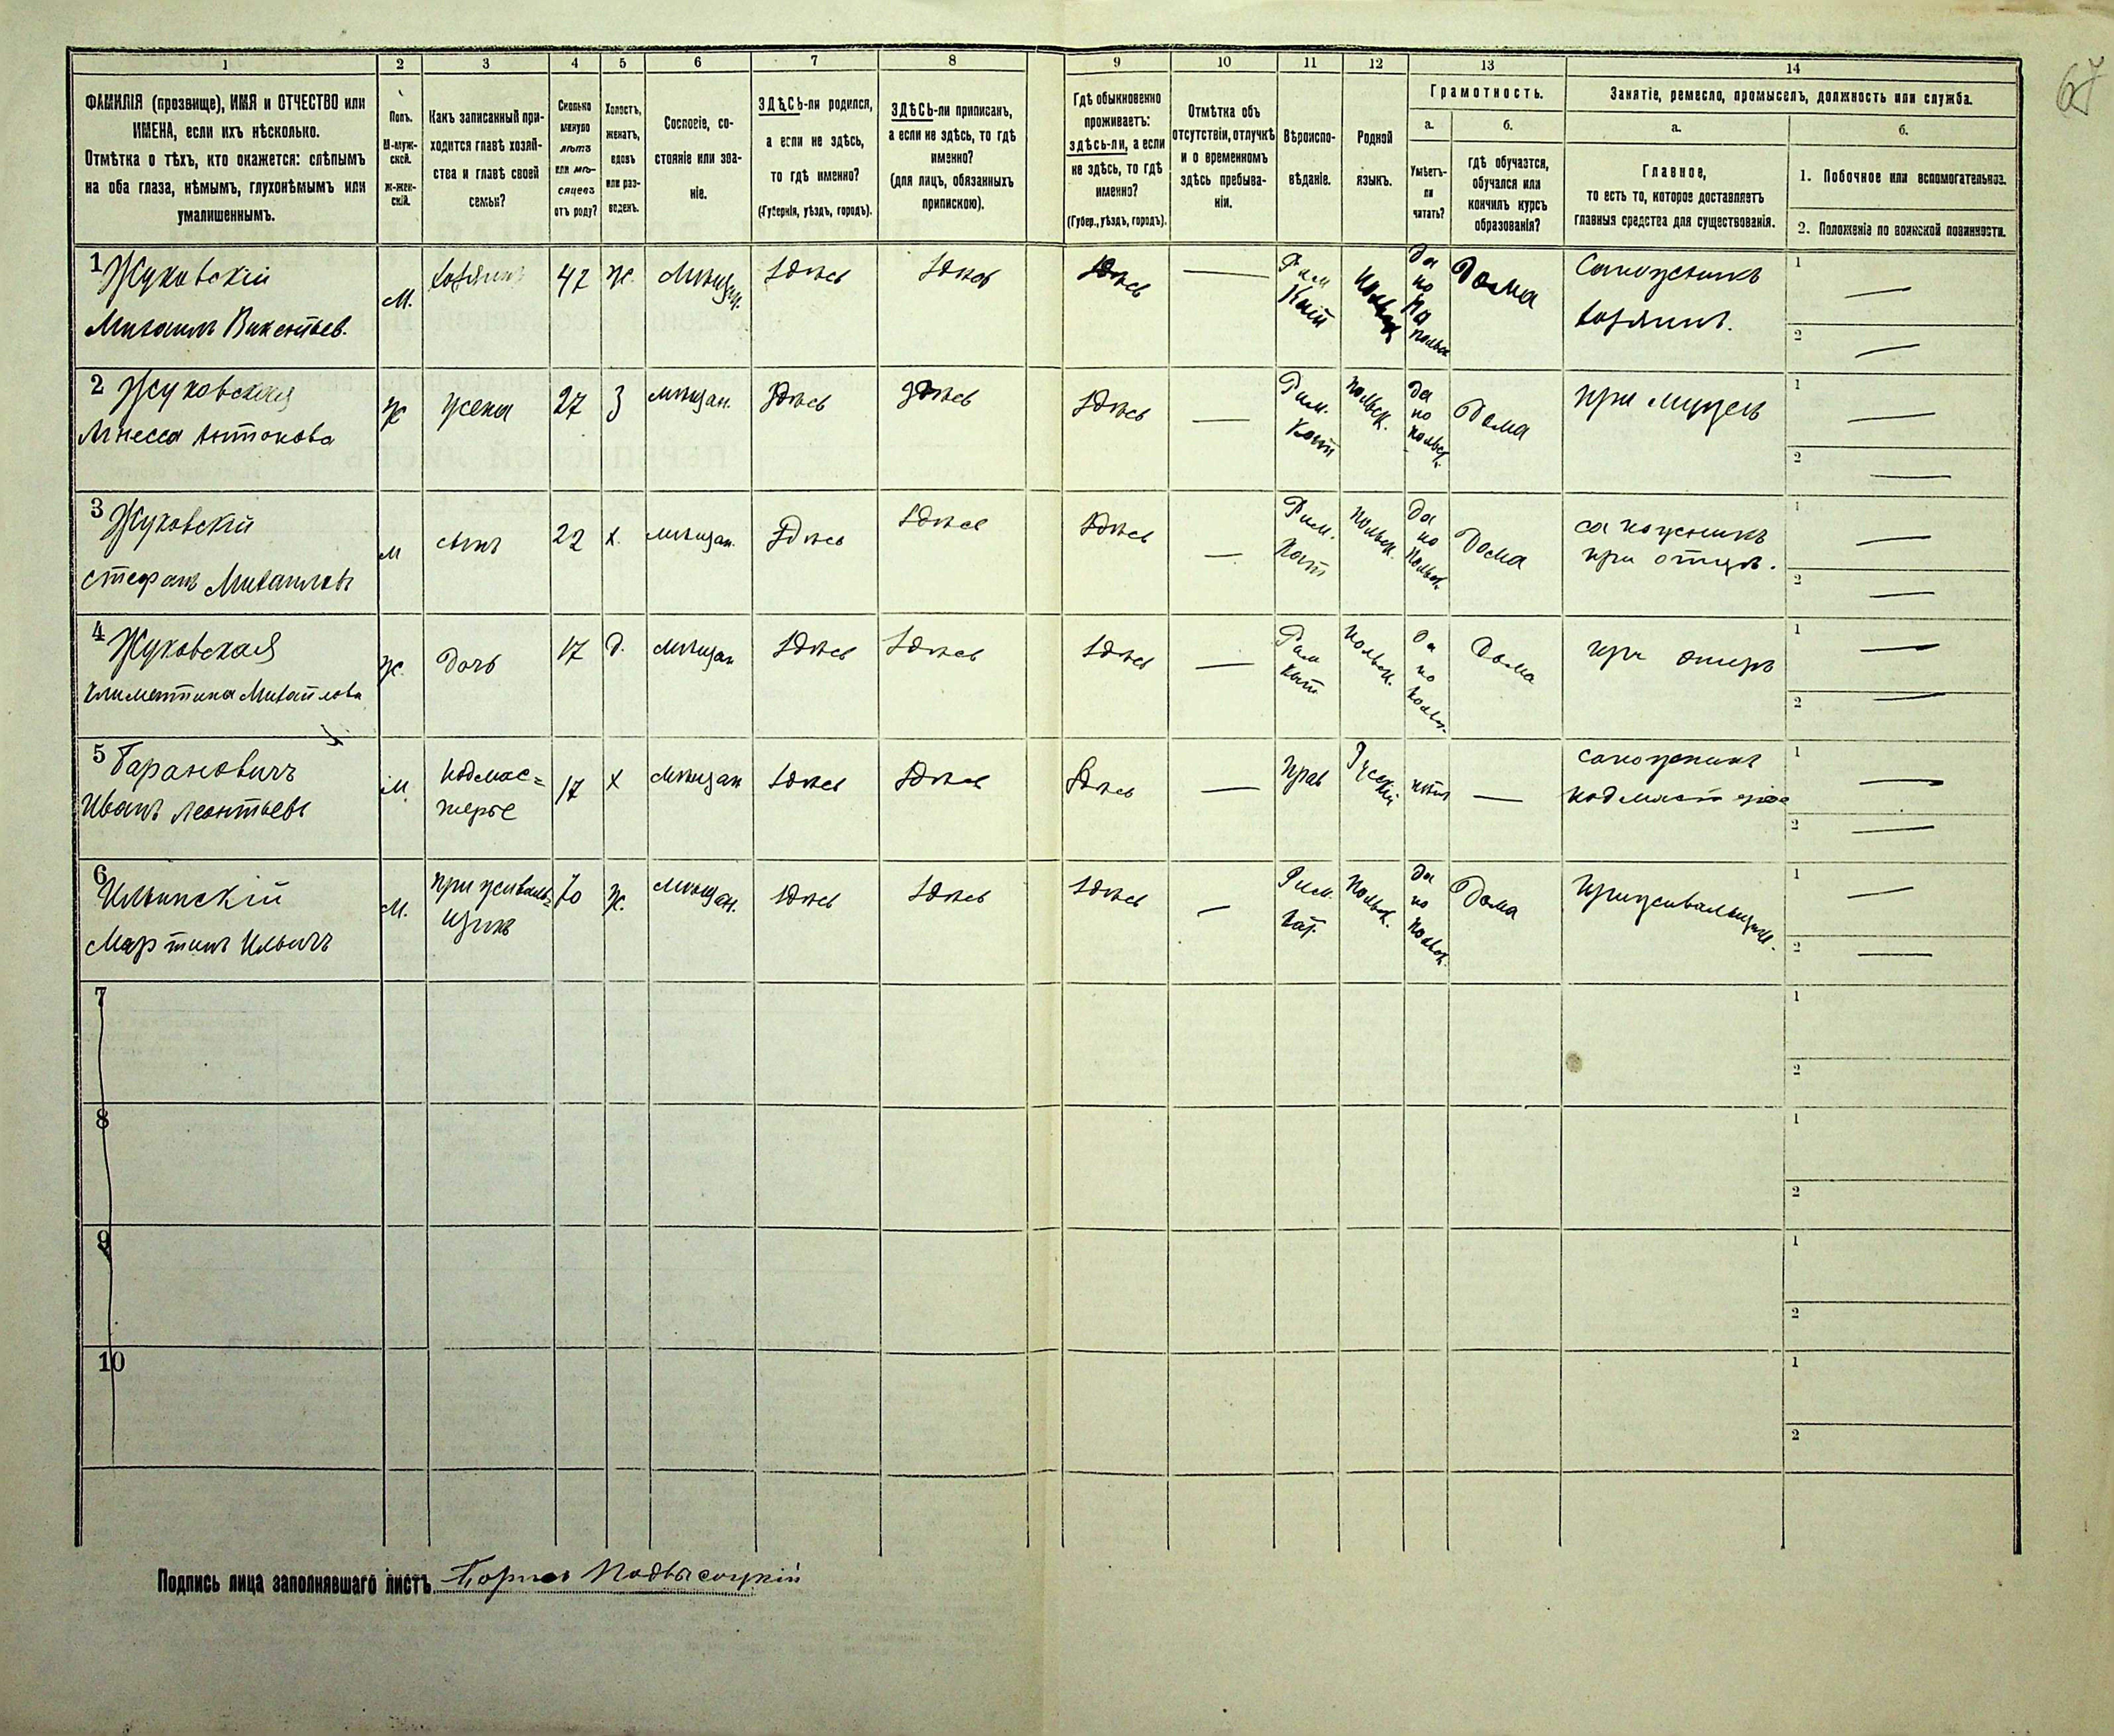 67
1 2 3 4 5 6 7 8 9 10 11 12 13 14
ФАМИЛІЯ (прозвище), ИМЯ и ОТЧЕСТВО или
ИМЕНА, если ихъ нѣсколько.
Отмѣтка о тѣхъ, кто окажется: слѣпымъ
на оба глаза, нѣмымъ, глухонѣмымъ или
умалишеннымъ.
Полъ.
М-муж-
ской.
Ж-жен-
скій.
Какъ записанный при-
ходится главѣ хозяй-
ства и главѣ своей
семьи?
Сколько
минуло
лѣтъ
или мѣ-
сяцевъ
отъ роду?
Холостъ,
женатъ,
вдовъ
или раз-
веденъ.
Сословіе, со-
стояніе или зва-
ніе.
ЗДѢСЬ-ли родился,
а если не здѣсь,
то гдѣ именно?
(Губернія, уѣздъ, городъ).
ЗДѢСЬ-ли приписанъ,
а если не здѣсь, то гдѣ
именно?
(для лицъ, обязанныхъ
припискою).
Гдѣ обыкновенно
проживаетъ:
здѣсь-ли, а если
не здѣсь, то гдѣ
именно?
(Губер., уѣздъ, городъ).
Отмѣтка объ
отсутствіи, отлучкѣ
и о временномъ
здѣсь пребыва-
ніи.
Вѣроиспо-
вѣданіе.
Родной
языкъ.
Грамотность.
а.
Умѣетъ-
ли
читать?
б.
гдѣ обучается,
обучался или
кончилъ курсъ
образованія?
Занятіе, ремесло, промыселъ, должность или служба.
а.
Главное,
то есть то, которое доставляетъ
главныя средства для существованія.
б.
1. Побочное или вспомогательное.
2. Положеніе по воинской повинности.
1 Жуковскій
Михаилъ Викентьев.
М.
хозяинъ
47
Ж.
Мѣщан.
Здѣсь
Здѣсь
Здѣсь
—
Рим
Кат
Польск
Да
по
Польск
Дома
Сапожникъ
хозяинъ.
1 —
2 —
2 Жуковская
Агнесса Антонова
Ж
жена
27
З
мѣщан.
Здѣсь
Здѣсь
Здѣсь
—
Рим.
Кат
Польск.
Да
по
польск.
Дома
при мужѣ
1 —
2 —
3 Жуковскій
Стефанъ Михаиловъ
М
сынъ
22
х.
мѣщан.
Здѣсь
Здѣсь
Здѣсь
—
Рим.
Кат
Польск.
Да
по
Польск
Дома
сапожникъ
при отцѣ.
1 —
2 —
4 Жуковская
Климентина Михайлова
Ж.
Дочь
17
д.
мѣщан
Здѣсь
Здѣсь
Здѣсь
—
Рим
Кат.
Польск.
Да
по
польск.
Дома
при отцѣ
1 —
2 —
5 Барановичъ
Иванъ Леонтьевъ
М
подмас=
терье
17
х
мѣщан
Здѣсь
Здѣсь
Здѣсь
—
Прав
Русскій
нѣтъ
—
сапожникъ
подмастерье
1 —
2 —
6 Ильинскій
Мартинъ Ильичъ
М.
приживаль-
щикъ
70
Ж.
мѣщан.
Здѣсь
Здѣсь
Здѣсь
—
Рим.
Кат.
Польск.
Да
по
Польск.
Дома
Приживальщик.
1 —
2 —
7
1
2
8
1
2
9
1
2
10
1
2
Подпись лица заполнявшаго листъ Борисъ Подвысоцкій